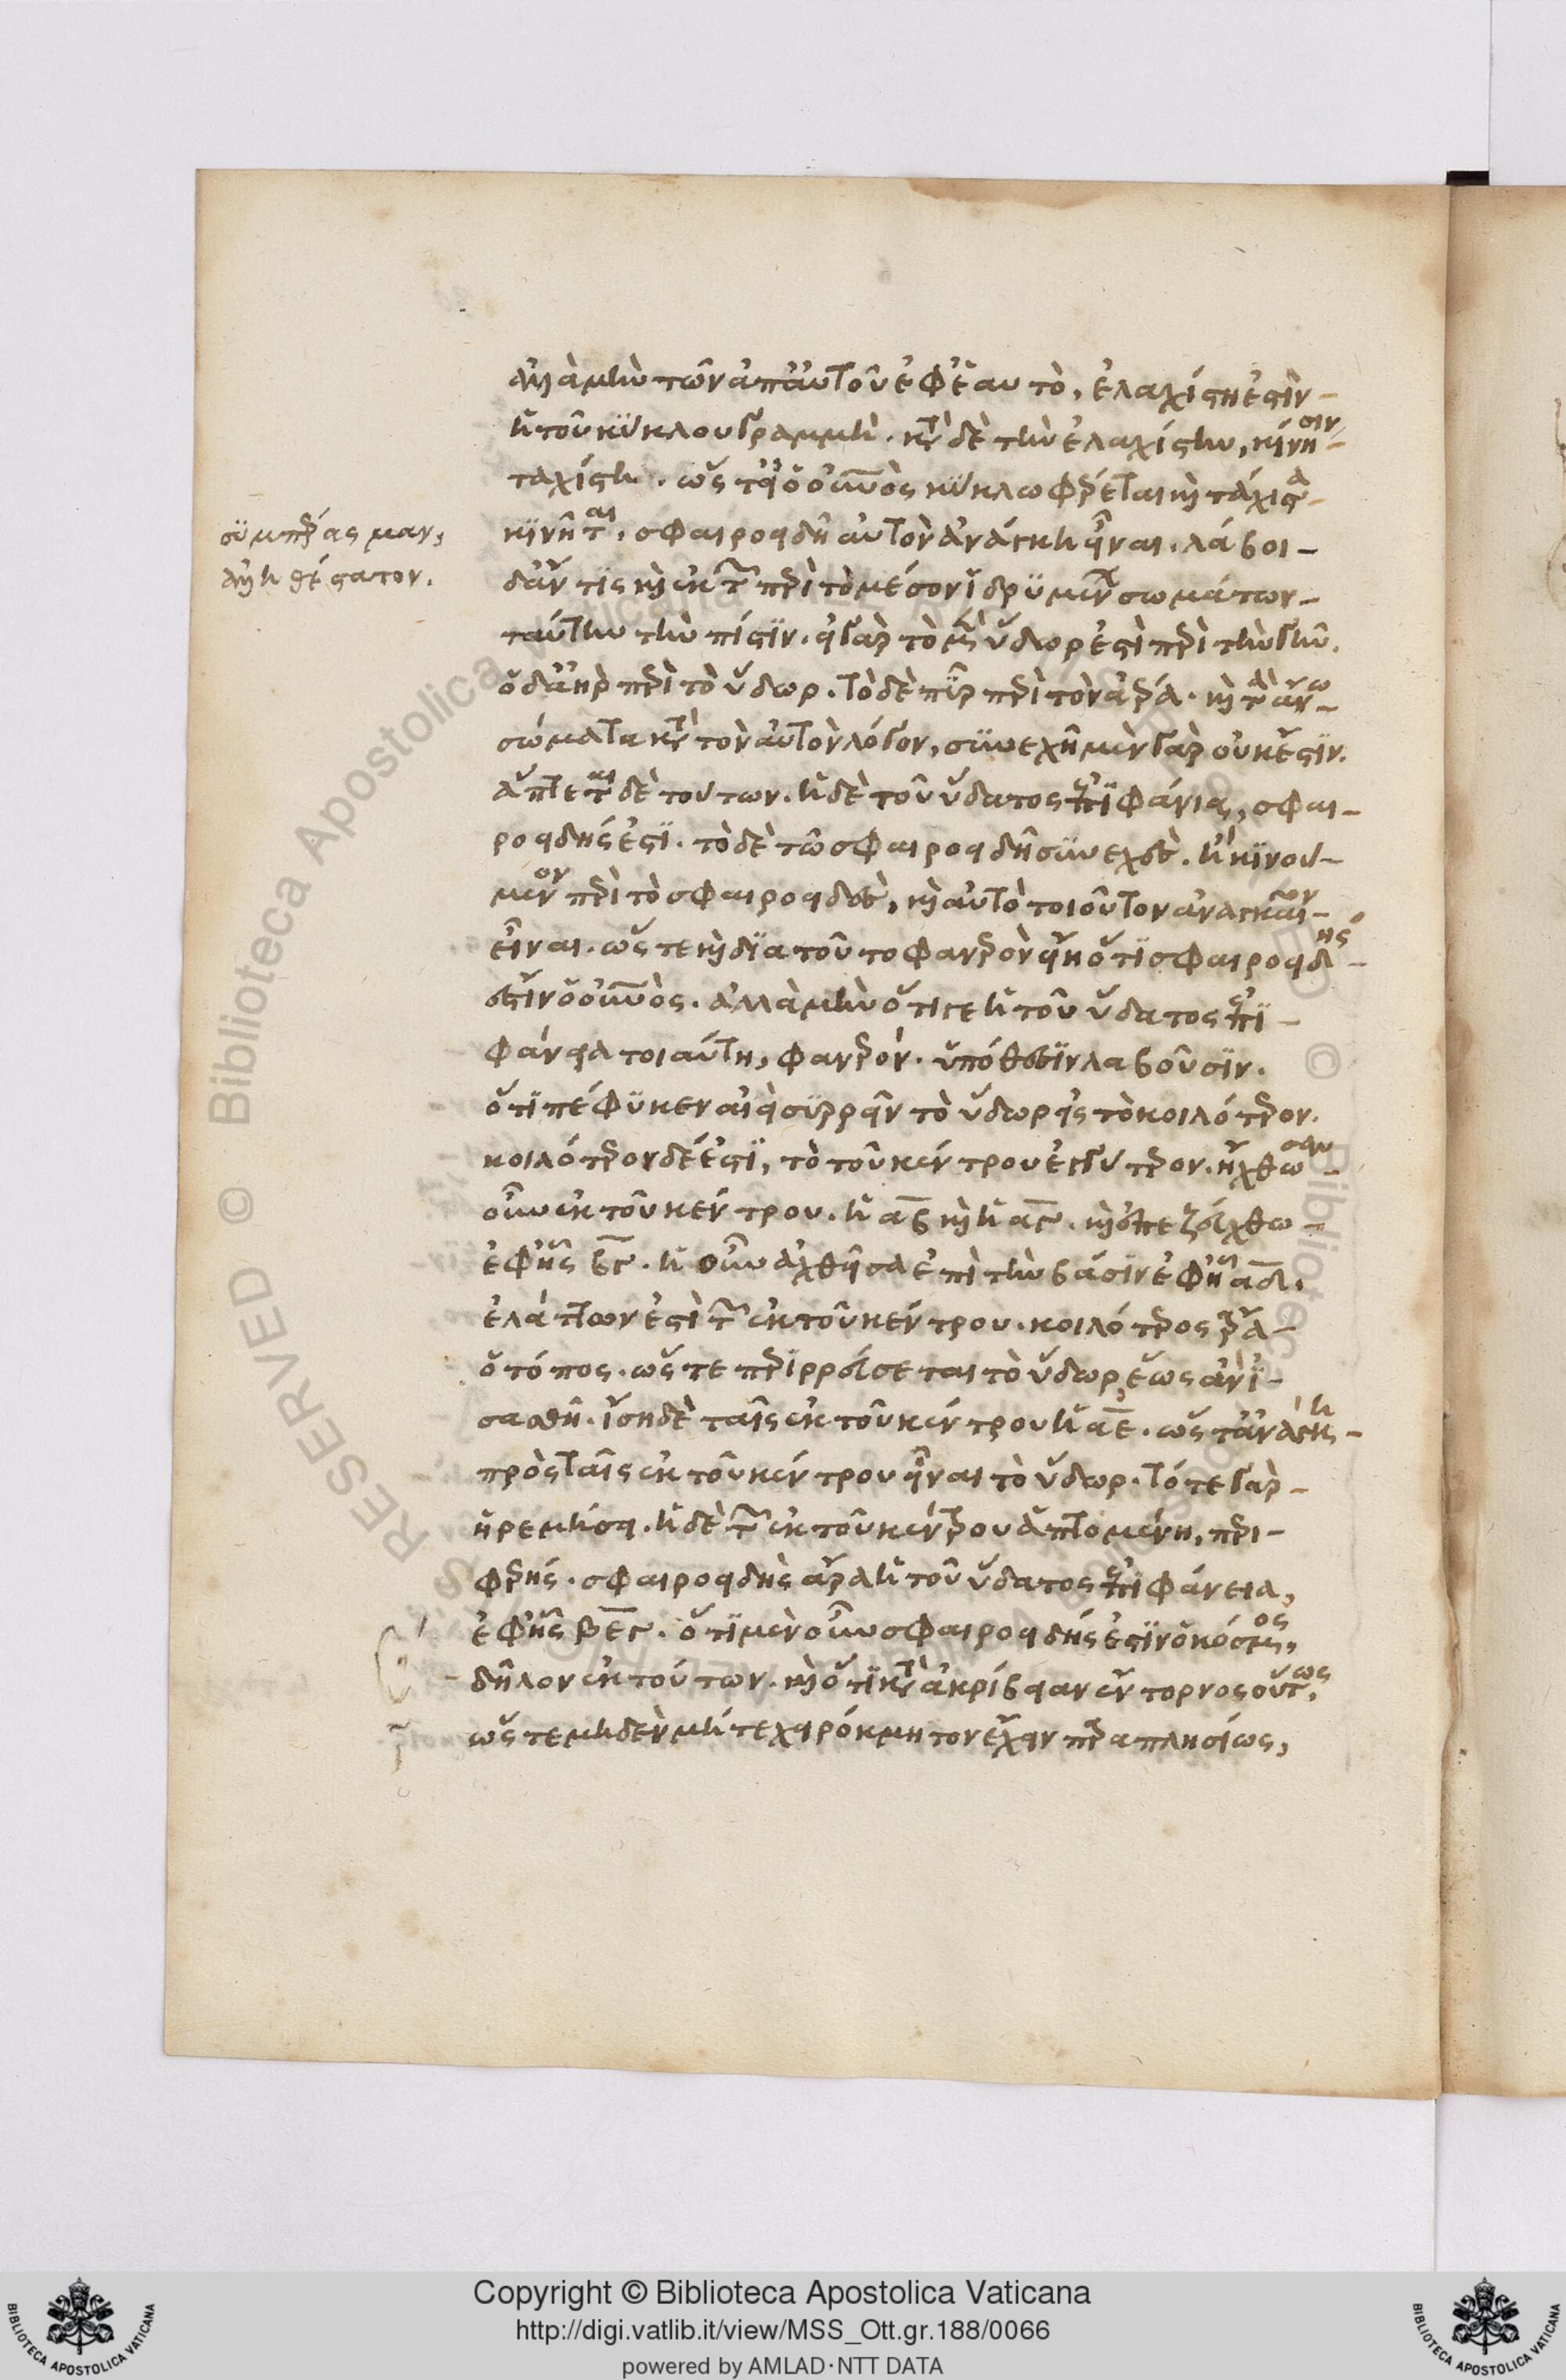 ἀλλὰ μὴν τῶν ἀπ' αὐτοῦ ἐφ' ἑαυτὸ, ἐλαχίστη ἐστὶν
ἡ τοῦ κύκλου γραμμὴ. κατὰ δὲ τὴν ἐλαχίστην, κίνησιν
ταχίστη. ὥστ' εἰ ὁ οὐνος κύκλω φέρεται καὶ τάχιστα
κινεῖται, σφαιροειδῆ αὐτὸν ἀνάγκη εἶναι. λάβοι
συμπέρασμα,
ἄλλη
δ' ἄν τις καὶ ἐκ τῶν περὶ τὸ μέσον ἱδρυμένων σωμάτων
ταύτην τὴν πίστιν. εἰ γὰρ τὸ μὲν ὕδωρ ἐστὶ περὶ τὴν γῆν.
ὁ δ' ἀὴρ περὶ τὸ ὕδωρ. τὸ δὲ πῦρ περὶ τὸν ἀέρα. καὶ τὰ ἄνω
σώματα κατὰ τὸν αὐτὸν λόγον, συνεχῆ μὲν γὰρ οὐκ ἔστιν.
ἅπτεται δὲ τούτων. ἡ δὲ τοῦ ὕδατος ἐπιφάνια, σφαι
ροειδής ἐστι. τὸ δὲ τῶ σφαιροειδῆ συνεχὲς. ἢ κινού
μενον περὶ τὸ σφαιροειδὲς, καὶ αὐτὸ τοιοῦτον ἀναγκαῖον
εἶναι. ὥστε καὶ διὰ τοῦτο φανερὸν εἴη ὅτι σφαιροειδής
ἐστιν ὁ οὐνος. ἀλλὰ μὴν ὅτι γε ἡ τοῦ ὕδατος ἐπι
φάνεια τοιαύτη, φανερὸν. ὑπόθεσιν λαβοῦσιν.
ὅτι πέφυκεν αἰεὶ συρρεῖν τὸ ὕδωρ εἰς τὸ κοιλότερον.
κοιλότερον δέ ἐστι, τὸ τοῦ κέντρου ἐγγύτερον. ἤχθωσαν
οὖν ἐκ τοῦ κέντρου. ἡ αβ καὶ ἡ αγ. καὶ ἐπεζεύχθω
ἐφ' ἧς βγ. ἡ οὖν ἀχθεῖσα ἐπὶ τὴν βάσιν ἐφ' ἧ αδ.
ἐλάττων ἐστὶ τῶν ἐκ τοῦ κέντρου. κοιλότερος ἄρα
ὁ τόπος. ὥστε περιρρεύσεται τὸ ὕδωρ, ἕως ἂν ἰ
σασθῆ. ἴση δὲ ταῖς ἐκ τοῦ κέντρου ἡ αε. ὥστ' ἀνάγκη
πρὸς ταῖς ἐκ τοῦ κέντρου εἶναι τὸ ὕδωρ. τότε γὰρ
ἠρεμήσει. ἡ δὲ τῶν ἐκ τοῦ κέντρου ἁπτομένη, περι
φερής. σφαιροειδὴς ἄρα ἡ τοῦ ὕδατος ἐπιφάνεια,
ἐφ' ἧς βεγ. ὅτι μὲν οὖν σφαιροειδής ἐστιν ὁ κόσμος,
δῆλον ἐκ τούτων. καὶ ὅτι κατὰ ἀκρίβειαν ἔντορνος οὕτως,
ὥστε μηδὲν μήτε χειρόκμητον ἔχειν παραπλησίως,